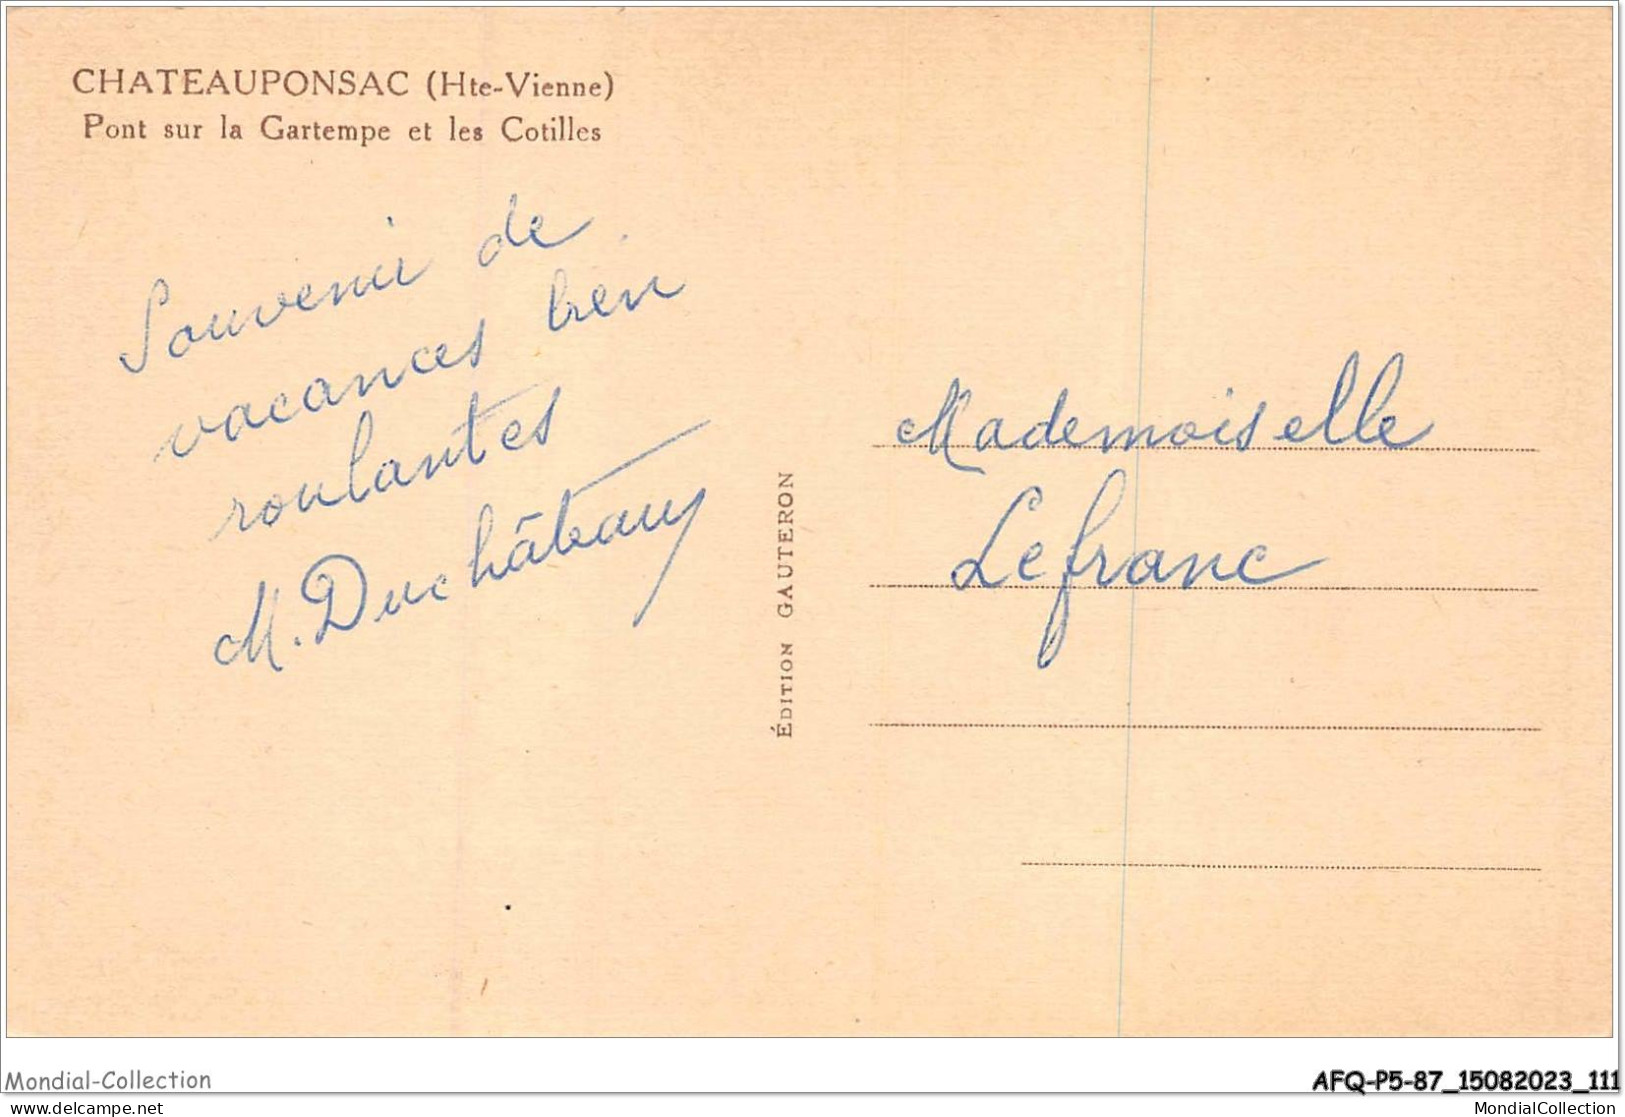 CHATEAUPONSAC (Hte-Vienne)
Pont sur la Gartempe et les Cotilles
Souvenir de
vacances bien
roulantes
M. Duchâteau
ÉDITION GAUTERON
Mademoiselle
Lefranc
Mondial-Collection
AFQ-P5-87_15082023_111
delcampe.net
MondialCollection